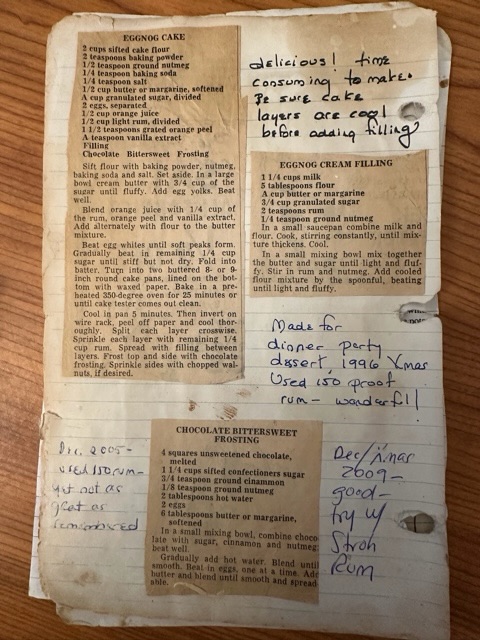 EGGNOG CAKE
2 cups sifted cake flour
2 teaspoons baking powder
1/2 teaspoon ground nutmeg
1/4 teaspoon baking soda
1/4 teaspoon salt
1/2 cup butter or margarine, softened
A cup granulated sugar, divided
2 eggs, separated
1/2 cup orange juice
1/2 cup light rum, divided
1 1/2 teaspoons grated orange peel
A teaspoon vanilla extract
Filling
Chocolate Bittersweet Frosting
Sift flour with baking powder, nutmeg,
baking soda and salt. Set aside. In a large
bowl cream butter with 3/4 cup of the
sugar until fluffy. Add egg yolks. Beat
well.
Blend orange juice with 1/4 cup of
the rum, orange peel and vanilla extract.
Add alternately with flour to the butter
mixture.
Beat egg whites until soft peaks form.
Gradually beat in remaining 1/4 cup
sugar until stiff but not dry. Fold into
batter. Turn into two buttered 8- or 9-
inch round cake pans, lined on the bot-
tom with waxed paper. Bake in a pre-
heated 350-degree oven for 25 minutes or
until cake tester comes out clean.
Cool in pan 5 minutes. Then invert on
wire rack, peel off paper and cool thor-
oughly. Split each layer crosswise.
Sprinkle each layer with remaining 1/4
cup rum. Spread with filling between
layers. Frost top and side with chocolate
frosting. Sprinkle sides with chopped wal-
nuts, if desired.
delicious! time
consuming to make.
Be sure cake
layers are cool
before adding filling!
EGGNOG CREAM FILLING
1 1/4 cups milk
5 tablespoons flour
A cup butter or margarine
3/4 cup granulated sugar
2 teaspoons rum
1/4 teaspoon ground nutmeg
In a small saucepan combine milk and
flour. Cook, stirring constantly, until mix-
ture thickens. Cool.
In a small mixing bowl mix together
the butter and sugar until light and fluf-
fy. Stir in rum and nutmeg. Add cooled
flour mixture by the spoonful, beating
until light and fluffy.
Made for
dinner party
dessert, 1996 Xmas
Used 150 proof
rum - wonderful!
Dec. 2005-
used 150 rum-
yet not as
great as
remembered
CHOCOLATE BITTERSWEET
FROSTING
4 squares unsweetened chocolate,
melted
1 1/4 cups sifted confectioners sugar
3/4 teaspoon ground cinammon
1/8 teaspoon ground nutmeg
2 tablespoons hot water
2 eggs
6 tablespoons butter or margarine,
softened
In a small mixing bowl, combine choco-
late with sugar, cinnamon and nutmeg;
beat well.
Gradually add hot water. Blend until
smooth. Beat in eggs, one at a time. Add
butter and blend until smooth and spread-
able.
Dec/Xmas
2009-
good-
try w/
Stroh
Rum